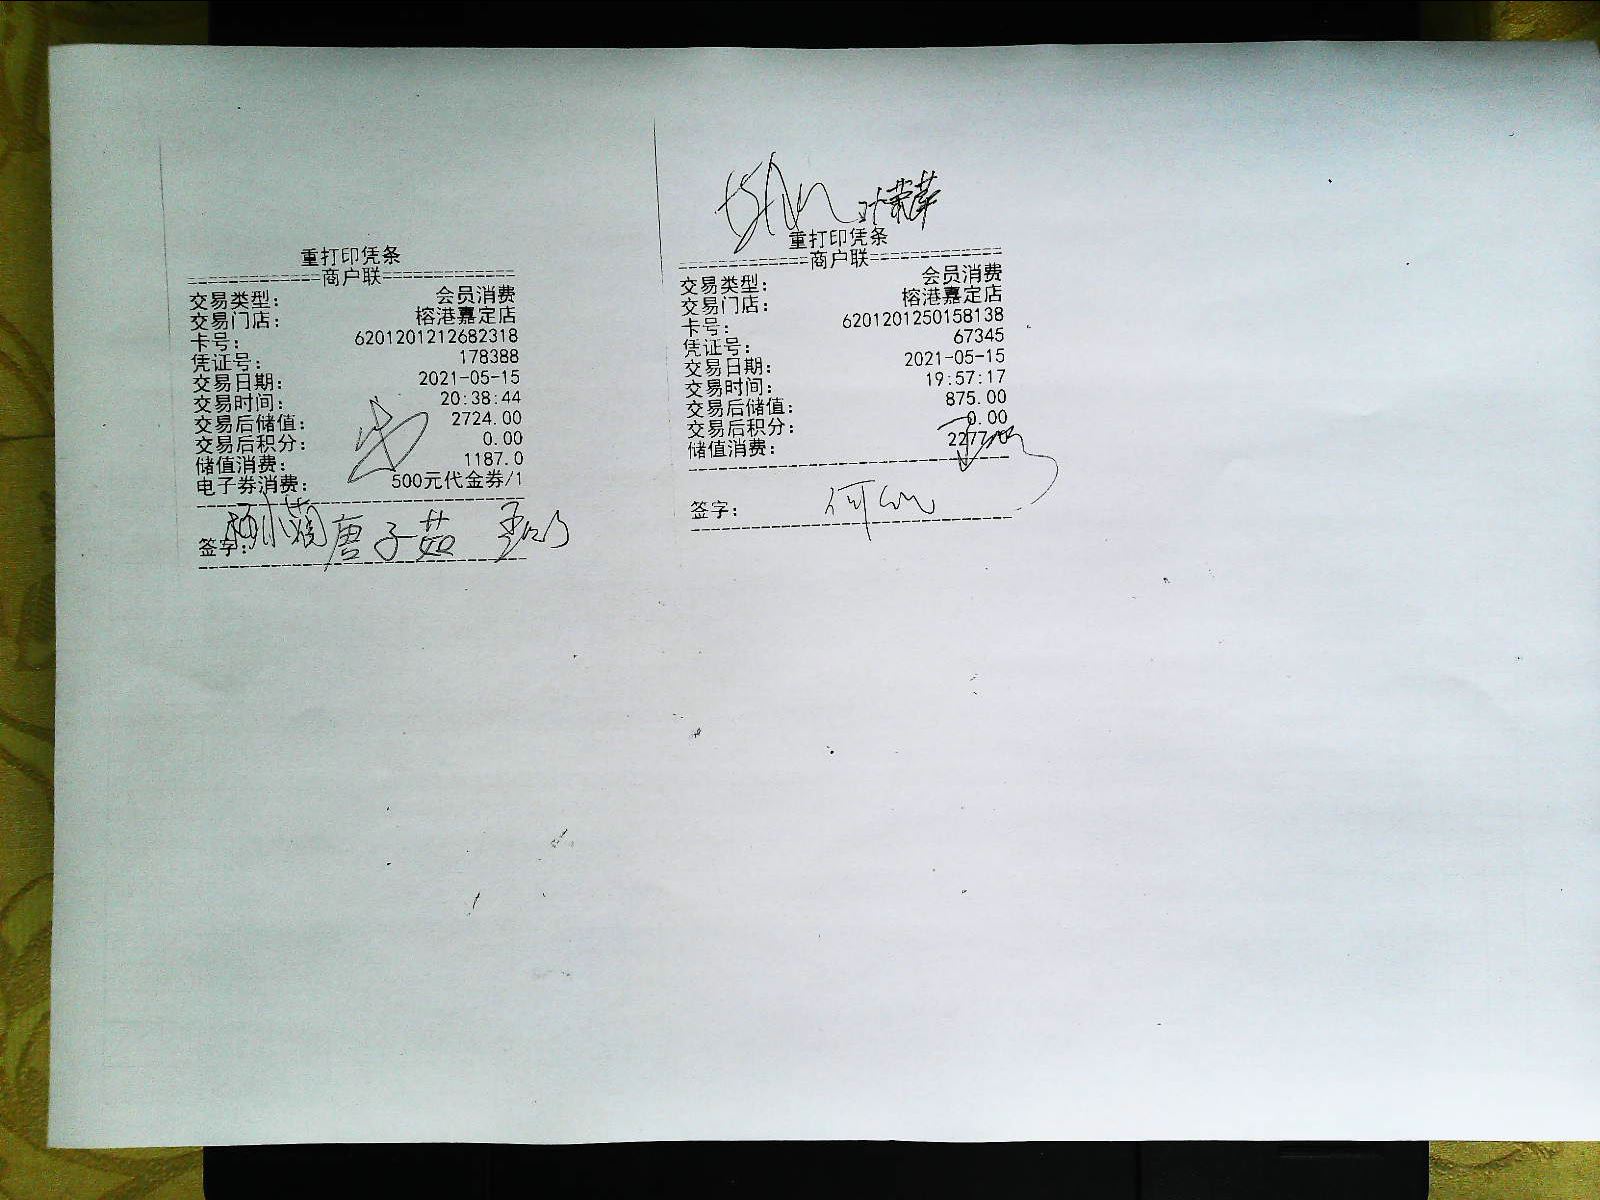 重打印凭条
==============商户联==============
交易类型: 会员消费
交易门店: 榕港嘉定店
卡号: 6201201212682318
凭证号: 178388
交易日期: 2021-05-15
交易时间: 20:38:44
交易后储值: 2724.00
交易后积分: 0.00
储值消费: 1187.0
电子券消费: 500元代金券/1
签字: 唐子茹
重打印凭条
==============商户联==============
交易类型: 会员消费
交易门店: 榕港嘉定店
卡号: 6201201250158138
凭证号: 67345
交易日期: 2021-05-15
交易时间: 19:57:17
交易后储值: 875.00
交易后积分: 0.00
储值消费:
签字: